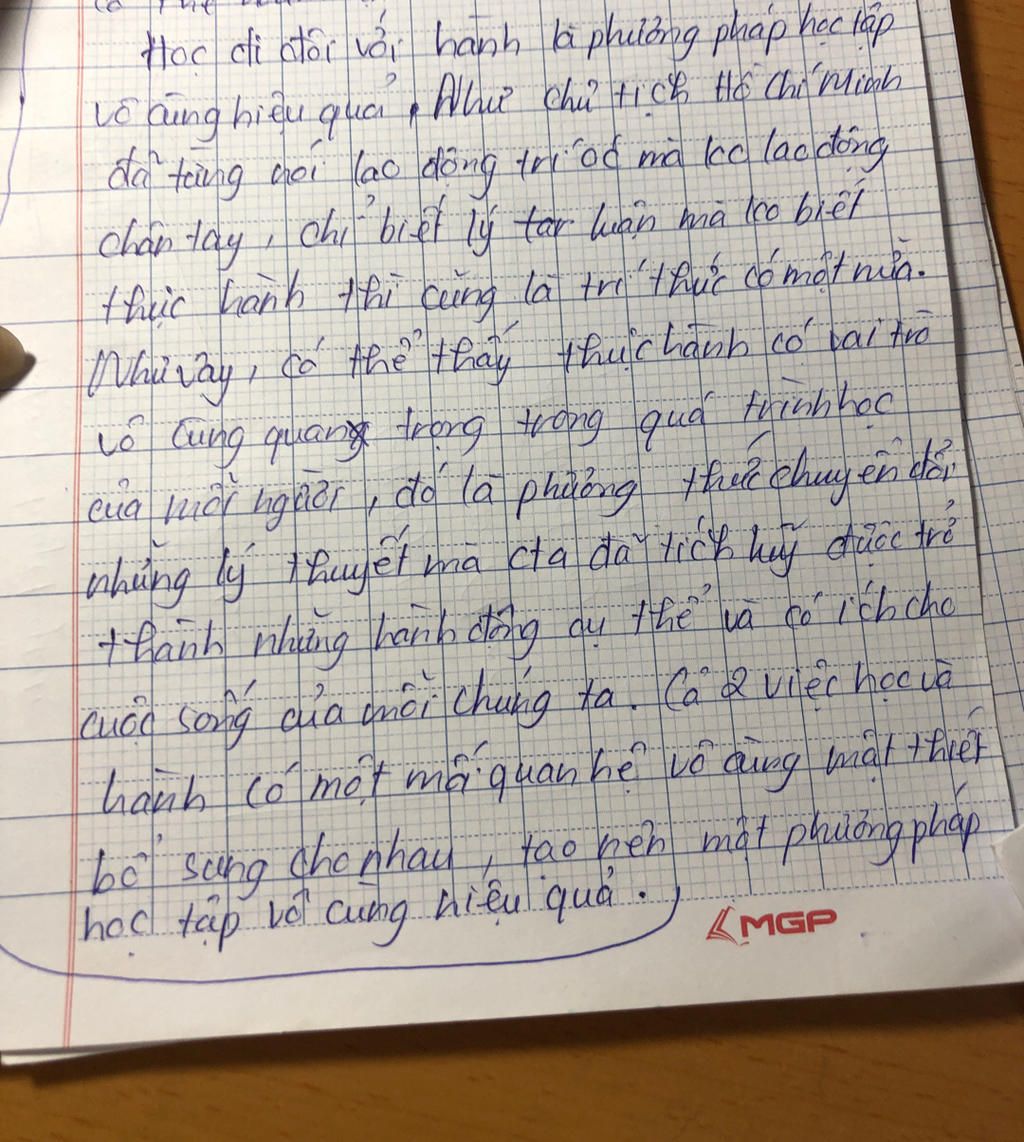 Học đi đôi với hành là phương pháp học tập
vô cùng hiệu quả. Như chủ tịch Hồ Chí Minh
đã từng nói lao động trí óc mà ko lao động
chân tay, chỉ biết lý luận mà ko biết
thực hành thì cũng là trí thức có một nửa.
Như vậy, có thể thấy thực hành có vai trò
vô cùng quan trọng trong quá trình học
của mỗi người, đó là phương thức chuyển đổi
những lý thuyết mà cta đã tích luỹ được trở
thành những hành động cụ thể và có ích cho
cuộc sống của mỗi chúng ta. Cả 2 việc học và
hành có một mối quan hệ vô cùng mật thiết
bổ sung cho nhau, tạo nên một phương pháp
học tập vô cùng hiệu quả.
MGP